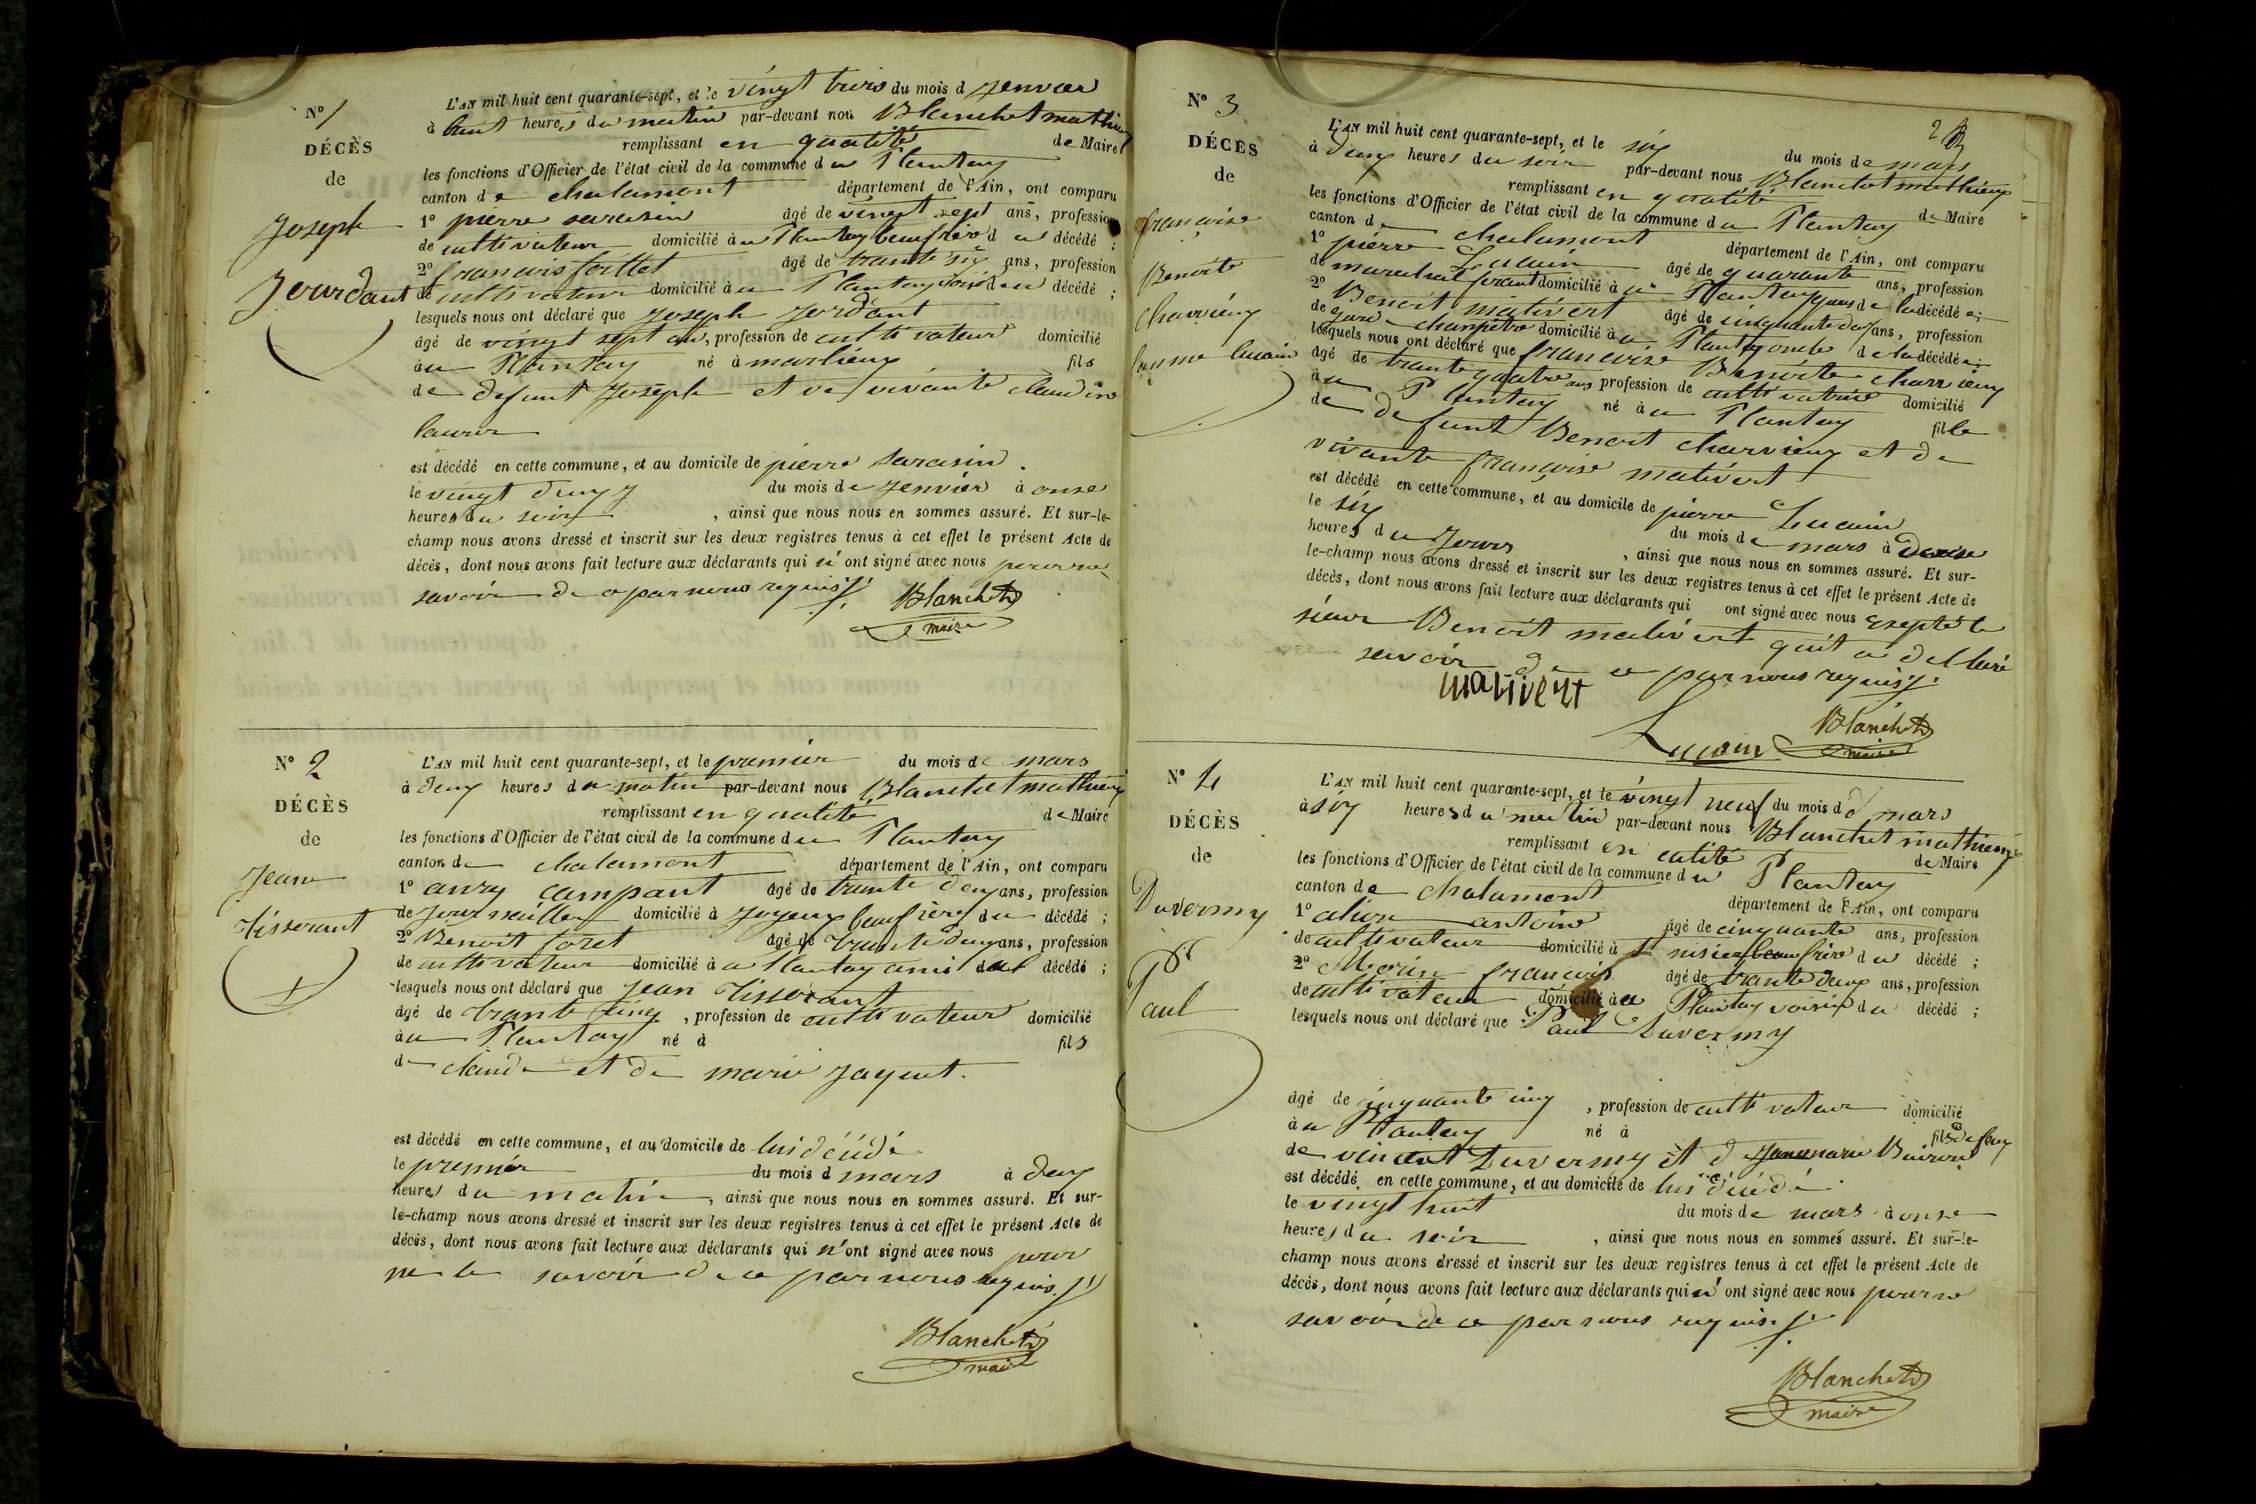 N° 1
DÉCÈS
de
Joseph
Jourdant
L'AN mil huit cent quarante-sept, et le vingt trois du mois d jenvier
à huit heures du matin par-devant nous Blanchet mathieu
remplissant en qualité de Maire
les fonctions d'Officier de l'état civil de la commune du Plantay
canton de chalamont département de l'Ain, ont comparu
1° pierre sarasin âgé de vingt sept ans, profession
de cultivateur domicilié à u Plantay beaufrère d u décédé ;
2° francois fortlet âgé de trante six ans, profession
de cultivateur domicilié à u Plantay voisi d u décédé ;
lesquels nous ont déclaré que joseph jordant
âgé de vingt sept ans, profession de cultivateur domicilié
à u Plantay né à marlieux fils
de defunt joseph et de vivante claudine
laurer
est décédé en cette commune, et au domicile de pierre sarasin.
le vingt deux du mois de jenvier à onse
heures du soir , ainsi que nous nous en sommes assuré. Et sur-le-
champ nous avons dressé et inscrit sur les deux registres tenus à cet effet le présent Acte de
décès, dont nous avons fait lecture aux déclarants qui n' ont signé avec nous pour ne
savoir de ce par nous requis
Blanchet
maire
N° 2
DÉCÈS
de
Jean
tisserant
L'AN mil huit cent quarante-sept, et le premier du mois de mars
à deux heures du matin par-devant nous Blanchet mathieu
remplissant en qualité de Maire
les fonctions d'Officier de l'état civil de la commune du Plantay
canton de chalamont département de l'Ain, ont comparu
1° anry campant âgé de trante deux ans, profession
de journaillier domicilié à joyeux beaufrère du décédé ;
2° Benoit foret âgé de trante deux ans, profession
de cultivateur domicilié à u Plantay ami du décédé ;
lesquels nous ont déclaré que jean tisserant
âgé de trante sinq , profession de cultivateur domicilié
à u Plantay né à fils
de claude et de marie jayent.
est décédé en cette commune, et au domicile de lui décédé
le premier du mois d mars à deux
heures du matin , ainsi que nous nous en sommes assuré. Et sur-
le-champ nous avons dressé et inscrit sur les deux registres tenus à cet effet le présent Acte de
décès, dont nous avons fait lecture aux déclarants qui n' ont signé avec nous pour
ne le savoir de ce par nous requis
Blanchet
maire
2
N° 3
DÉCÈS
de
françoise
Benoite
charvieux
famme lucain
L'AN mil huit cent quarante-sept, et le six du mois de mars
à deux heures du soir par-devant nous Blanchet mathieu
remplissant en qualité de Maire
les fonctions d'Officier de l'état civil de la commune du Plantay
canton de chalamont département de l'Ain, ont comparu
1° pierre Lucain âgé de quarante ans, profession
de marechal ferant domicilié à u Plantay de la décédée ;
2° Benoit mativert âgé de cinquante deux ans, profession
de gard champêtre domicilié à u Plantay oncle de la décédée ;
lesquels nous ont déclaré que francoise Benoite charvieux
âgé de trante quatre ans profession de cultivatrice domicilié
à u Plantay né à u Plantay fille
de defunt Benoit charvieux et de
vivante françoise mativert
est décédé en cette commune, et au domicile de pierre Lucain
le six du mois de mars à
heures du jours , ainsi que nous nous en sommes assuré. Et sur-
le-champ nous avons dressé et inscrit sur les deux registres tenus à cet effet le présent Acte de
décès, dont nous avons fait lecture aux déclarants qui ont signé avec nous exsepté le
sieur Benoit mativert quit a dellaré
savoir de ce par nous requis
mativert
Lucain
Blanchet
maire
N° 4
DÉCÈS
de
Duvermy
Paul
L'AN mil huit cent quarante-sept, et le vingt neuf du mois d d mars
à six heures du matin par-devant nous Blanchet mathieu
remplissant en calité de Maire
les fonctions d'Officier de l'état civil de la commune du Plantay
canton de chalamont département de l'Ain, ont comparu
1° alion antoine âgé de cinquante ans, profession
de cultivateur domicilié à St nisier beaufrère du décédé ;
2° Morin francois âgé de trante deux ans, profession
de cultivateur domicilié à u Plantay voisin du décédé ;
lesquels nous ont déclaré que Paul Duvermy
âgé de cinquante cinq , profession de cultivateur domicilié
à u Plantay né à fils de feux
de vincent Duvermy et de
est décédé en cette commune, et au domicile de lui décédé
le vingt huit du mois de mars à onse
heures du soir , ainsi que nous nous en sommes assuré. Et sur-le-
champ nous avons dressé et inscrit sur les deux registres tenus à cet effet le présent Acte de
décès, dont nous avons fait lecture aux déclarants qui n' ont signé avec nous pour ne
savoir de ce par nous requis
Blanchet
maire